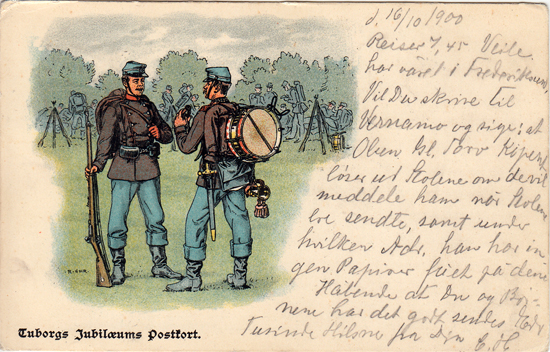 d. 16/10 1900
Reiser 7,45 Veile
har været i Fredericia
Vil Du skrive til
Vernamo og sige; at
Olsen Gl Torv Kjøper
løser ud Stolene om de vil
meddele ham når Stolen
ere sendte, samt under
hvilken Adr, han har in
gen Papirer fået på dem
Håbende at Du og Bør
nene har det godt sendes
Tusinde Hilsner fra Din
C. H.
R. CHR
Tuborgs Jubilæums Postkort.